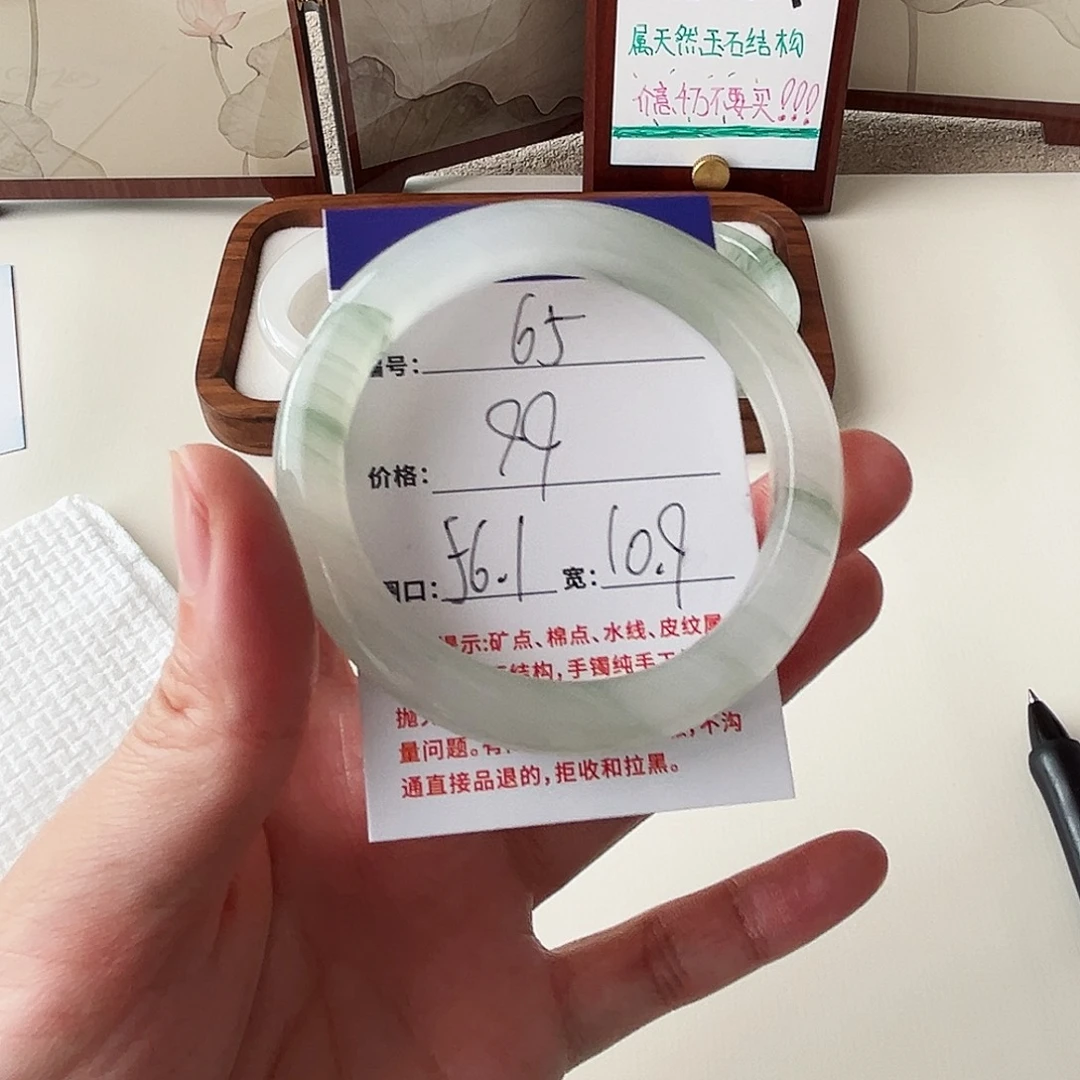 属天然玉石结构
介意千万不要买!!!
编号: 65
价格: 99
圈口: 56.1 宽: 10.9
提示:矿点、棉点、水线、皮纹属
结构,手镯纯手工
抛
量问题。有 不沟
通直接品退的,拒收和拉黑。